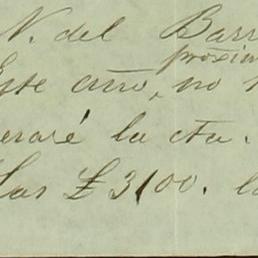 N. del Barr
próxim
Este año, no
eraré la cta.
las £3100. la